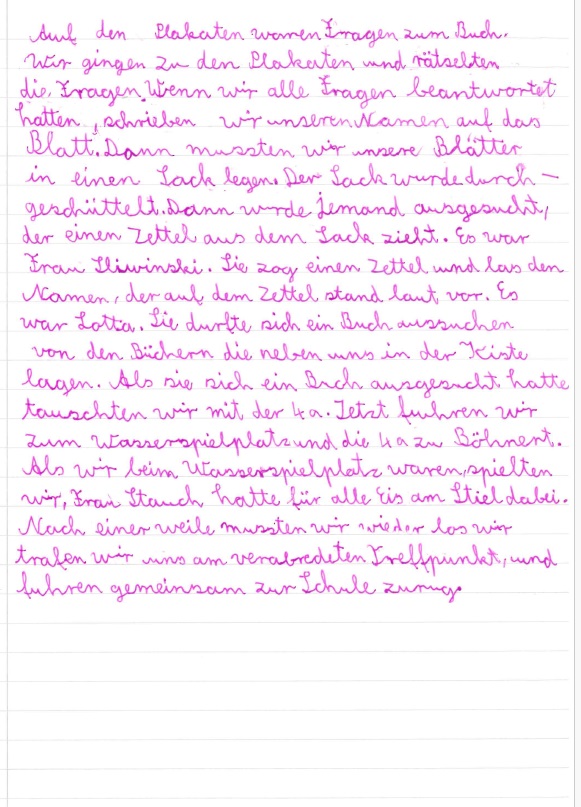 Auf den Plakaten waren Fragen zum Buch.
Wir gingen zu den Plakaten und rätselten
die Fragen. Wenn wir alle Fragen beantwortet
hatten, schrieben wir unseren Namen auf das
Blatt. Dann mussten wir unsere Blätter
in einen Sack legen. Der Sack wurde durch-
geschüttelt. Dann wurde jemand ausgesucht,
der einen Zettel aus dem Sack zieht. Es war
Frau Sliwinski. Sie zog einen Zettel und las den
Namen, der auf dem Zettel stand laut vor. Es
war Lotta. Sie durfte sich ein Buch aussuchen
von den Büchern die neben uns in der Kiste
lagen. Als sie sich ein Buch ausgesucht hatte
tauschten wir mit der 4a. Jetzt fuhren wir
zum Wasserspielplatz und die 4a zu Böhnert.
Als wir beim Wasserspielplatz waren, spielten
wir, Frau Stauch hatte für alle Eis am Stiel dabei.
Nach einer weile mussten wir wieder los wir
trafen wir uns am verabredeten Treffpunkt, und
fuhren gemeinsam zur Schule zurug.